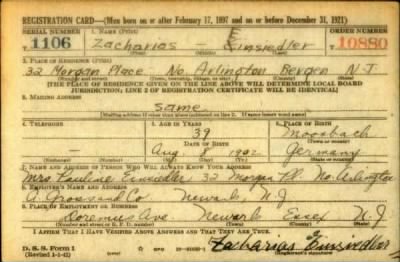 REGISTRATION CARD—(Men born on or after February 17, 1897 and on or before December 31, 1921)
SERIAL NUMBER 1. NAME (Print) ORDER NUMBER
T 1106 Zacharias Einsiedler 10880
(First) (Middle) (Last)
2. PLACE OF RESIDENCE (Print)
32 Morgan Place No Arlington Bergen N.J.
(Number and street) (Town, township, village, or city) (County) (State)
[THE PLACE OF RESIDENCE GIVEN ON THE LINE ABOVE WILL DETERMINE LOCAL BOARD
JURISDICTION; LINE 2 OF REGISTRATION CERTIFICATE WILL BE IDENTICAL]
3. MAILING ADDRESS
same
[Mailing address if other than place indicated on line 2. If same insert word same]
4. TELEPHONE 5. AGE IN YEARS 6. PLACE OF BIRTH
39 Moosbach
DATE OF BIRTH (Town or county)
Aug 8 1902 Germany
(Exchange) (Number) (Mo.) (Day) (Yr.) (State or country)
7. NAME AND ADDRESS OF PERSON WHO WILL ALWAYS KNOW YOUR ADDRESS
Mrs Pauline Einsiedler, 32 Morgan Pl. No. Arlington
8. EMPLOYER'S NAME AND ADDRESS
A. Gross and Co Newark, N.J
9. PLACE OF EMPLOYMENT OR BUSINESS
Doremus Ave. Newark Essex N.J
(Number and street or R. F. D. number) (Town) (County) (State)
I AFFIRM THAT I HAVE VERIFIED ABOVE ANSWERS AND THAT THEY ARE TRUE.
D. S. S. Form 1
(Revised 1-1-42) GPO Zacharias Einsiedler
(Registrant's signature)